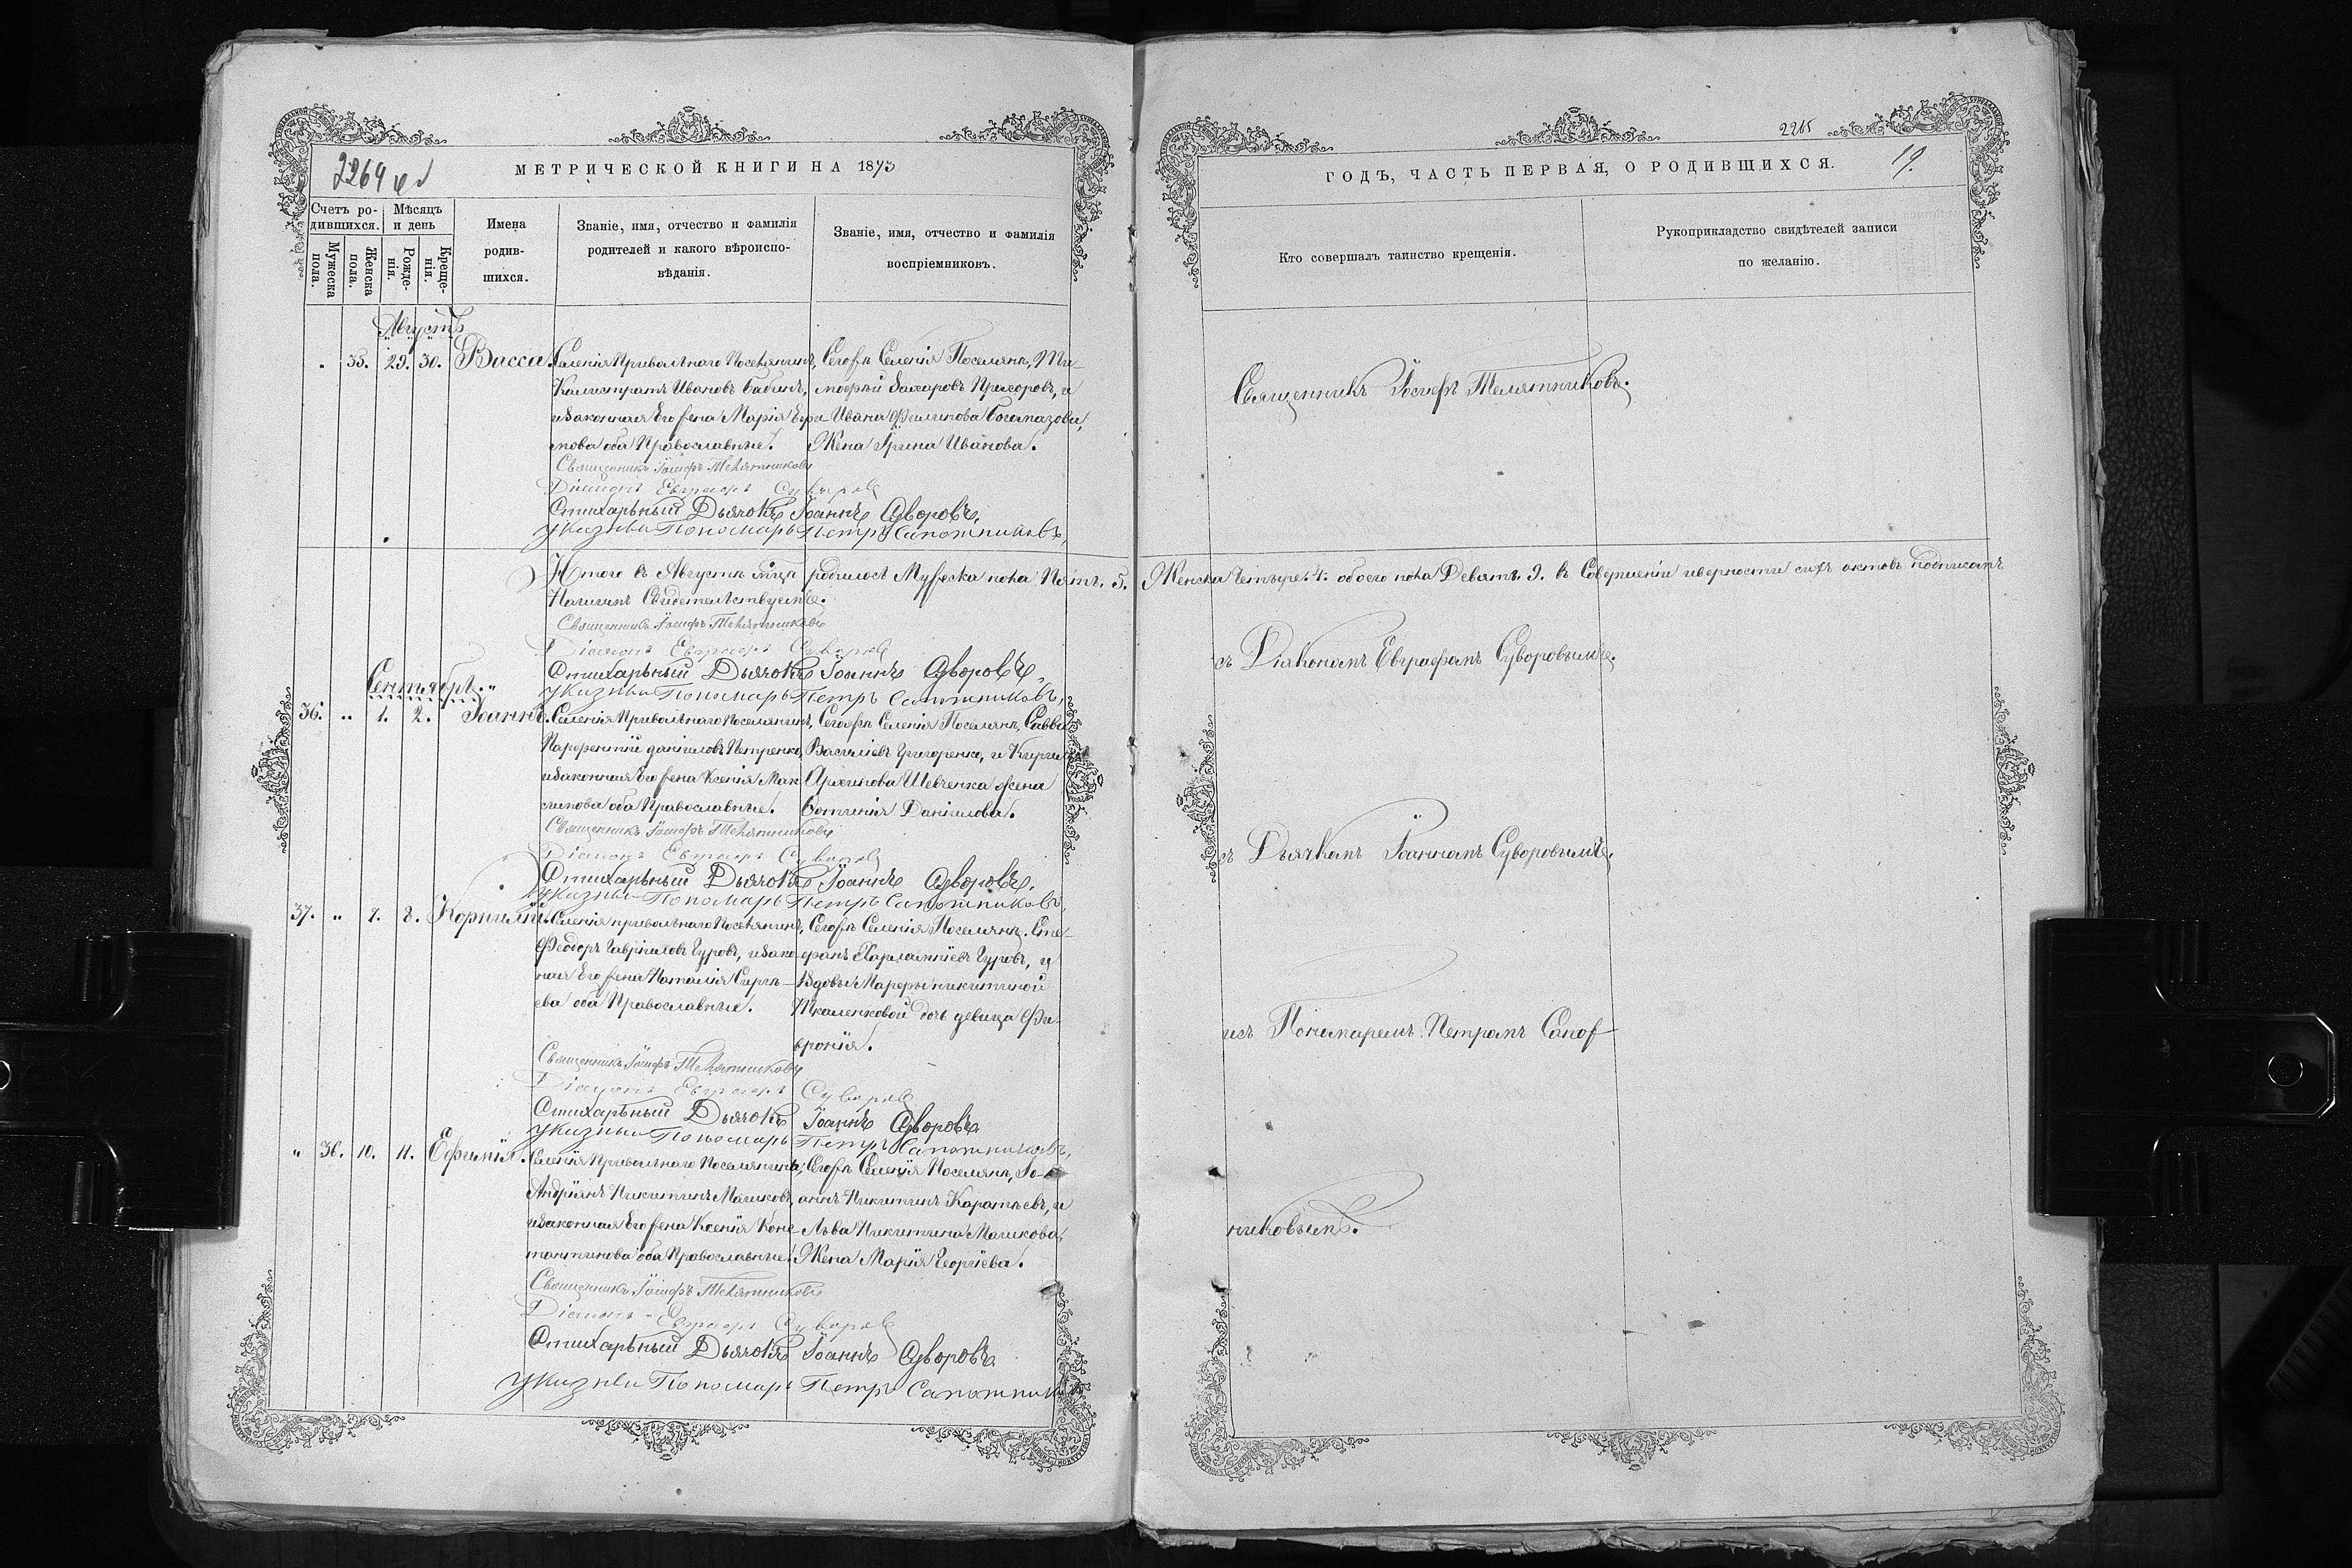 2264
МЕТРИЧЕСКОЙ КНИГИ НА 1873
Счетъ ро-
дившихся.
Мѣсяцъ
и день
Мужеска
пола.
Женска
пола.
Рожде-
нія.
Креще-
нія.
Имена
родив-
шихся.
Званіе, имя, отчество и фамилія
родителей и какого вѣроиспо-
вѣданія.
Званіе, имя, отчество и фамилія
воспріемниковъ.
Августъ
35. 29. 30. Васса.
Селенія Привольнаго Поселянинъ,
Калистратъ Ивановъ Бабинъ,
изаконная Его жена Марія Ефи-
мова оба Православные.
Сегожъ Селенія Поселяне, Ти-
мофей Захаровъ Прохоровъ, и
Ивана Филипова Богомазова,
Жена Ірина Иванова.
Священникъ Іосифъ Телятниковъ
Діаконъ Евграфъ Суворовъ
Стихарный Дьячокъ Іоаннъ Суворовъ,
Указный Пономарь Петръ Сапожниковъ,
Итого въ Августѣ мѣсяцѣ родилось Мужеска пола Пять. 5.
Наличіемъ Свидетельствуемъ.
Священникъ Іосифъ Телятниковъ
Діаконъ Евграфъ Суворовъ
Стихарный Дьячокъ Іоаннъ Суворовъ,
Указный Пономарь Петръ Сапожниковъ,
Сентябрь.
36. „ 1. 2. Іоаннъ.
Селенія Привольнаго Поселянинъ,
Парфентій Даніиловъ Петренко,
изаконная Его жена Ксенія Мак-
симова оба Православные.
Сегожъ Селенія Поселяне, Савва
Василіевъ Григоренко, и
Архипова Шевченка жена
Даніилова.
Священникъ Іосифъ Телятниковъ
Діаконъ Евграфъ Суворовъ
Стихарный Дьячокъ Іоаннъ Суворовъ,
Указный Пономарь Петръ Сапожниковъ,
37. „ 7. 8. Корнилій.
Селенія привольнаго Поселянинъ,
Феодоръ Гавріиловъ Гуровъ, изако-
ная Его жена Наталія Сергѣ-
ева оба Православные.
Сегожъ Селенія Поселяне. Сте-
фанъ Харлампіевъ Гуровъ, и
Вдовы Марфы никитиной
Ткаленковой дочь девица Фи-
вронія.
Священникъ Іосифъ Телятниковъ
Діаконъ Евграфъ Суворовъ
Стихарный Дьячокъ Іоаннъ Суворовъ
Указный Пономарь Петръ Сапожниковъ,
„ 36. 10. 11. Ефимія.
Селенія Привольнаго Поселянинъ,
Андріянъ Никитинъ Машковъ,
изаконная Его жена Ксенія Конс-
тантинова оба Православные.
Сегожъ Селенія Поселяне, Іо-
аннъ Никитинъ Каратѣевъ, и
Льва Никитина Машкова,
Жена Марія Георгіева.
Священникъ Іосифъ Телятниковъ
Діаконъ Евграфъ Суворовъ
Стихарный Дьячокъ Іоаннъ Суворовъ
Указный Пономарь Петръ Сапожниковъ
2265
ГОДЪ, ЧАСТЬ ПЕРВАЯ, О РОДИВШИХСЯ.
19.
Кто совершалъ таинство крещенія.
Рукоприкладство свидѣтелей записи
по желанію.
Священникъ Іосифъ Телятниковъ.
Женска Четыре. 4. обоего пола Девять. 9. въ Совершеніи иверности сихъ актовъ подписомъ
съ Діякономъ Евграфомъ Суворовымъ.
съ Дьячкомъ Іоанномъ Суворовымъ,
исъ Понамаремъ Петромъ Сапож-
никовымъ.